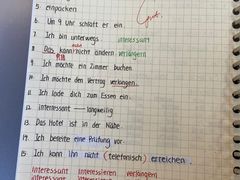 5. einpacken
6. Um 9 Uhr schläft er ein.
7. Ich bin unterwegs interessant
8. Das kann nicht ändern verlängern
9. Ich möchte ein Zimmer buchen
10. Ich möchte den Vertrag verlangen.
11. Ich lade dich zum Essen ein.
12. interessant — langweilig
13. Das Hotel ist in der Nähe.
14. Ich bereite eine Prüfung vor.
15. Ich kann ihn nicht (telefonisch) erreichen.
interessant interessieren verlängern
interessant